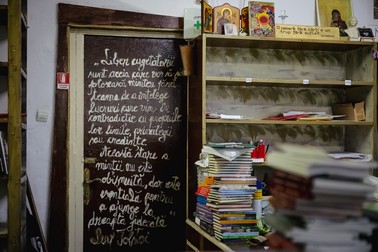 "Liber cugetători
sunt aceia care vor să-și
folosească mintea fără
teama de a înțelege
lucruri care vin în
contradicție cu propriile
lor limite, privilegii
sau credințe.
Această stare a
minții nu este
obișnuită, dar este
esențială pentru
a ajunge la
dreapta judecată"
Lev Tolstoi